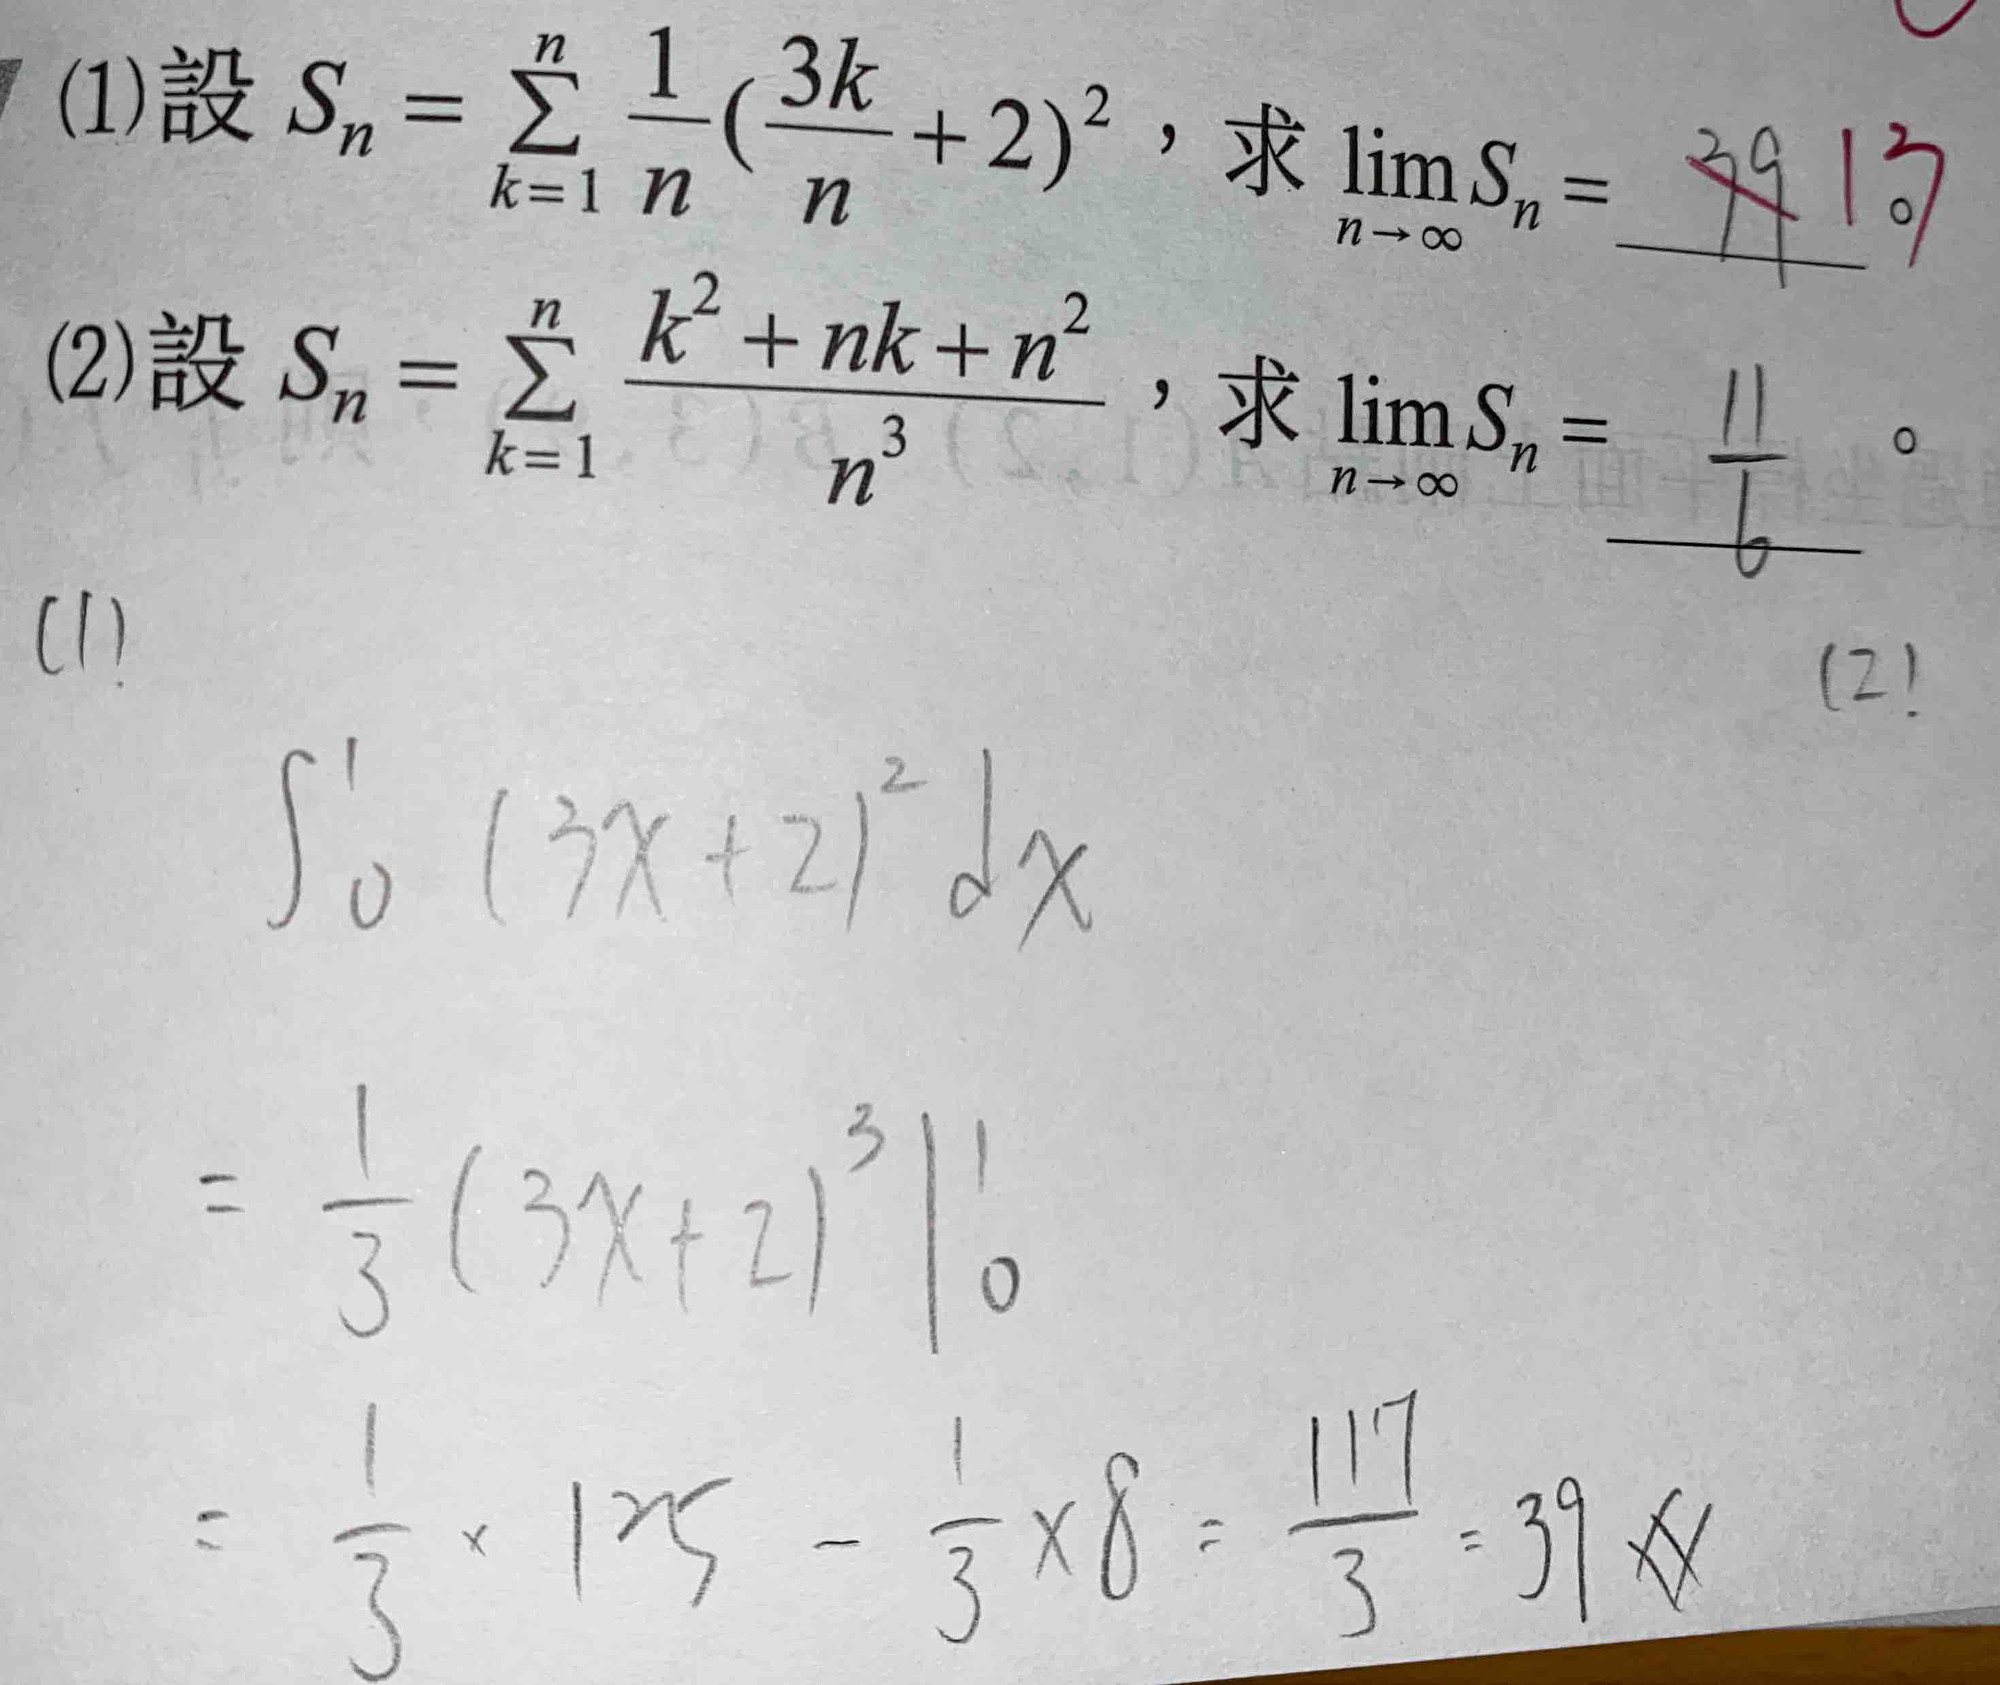 (1)設 Sₙ = ∑ₖ₌₁ⁿ 1/n (3k/n + 2)²，求 lim_{n→∞} Sₙ = 39 13。
(2)設 Sₙ = ∑ₖ₌₁ⁿ (k² + nk + n²)/n³，求 lim_{n→∞} Sₙ = 11/6。
(1)
(2)
∫₀¹ (3x+2)² dx
= 1/3 (3x+2)³ |₀¹
= 1/3 × 125 − 1/3 × 8 = 117/3 = 39